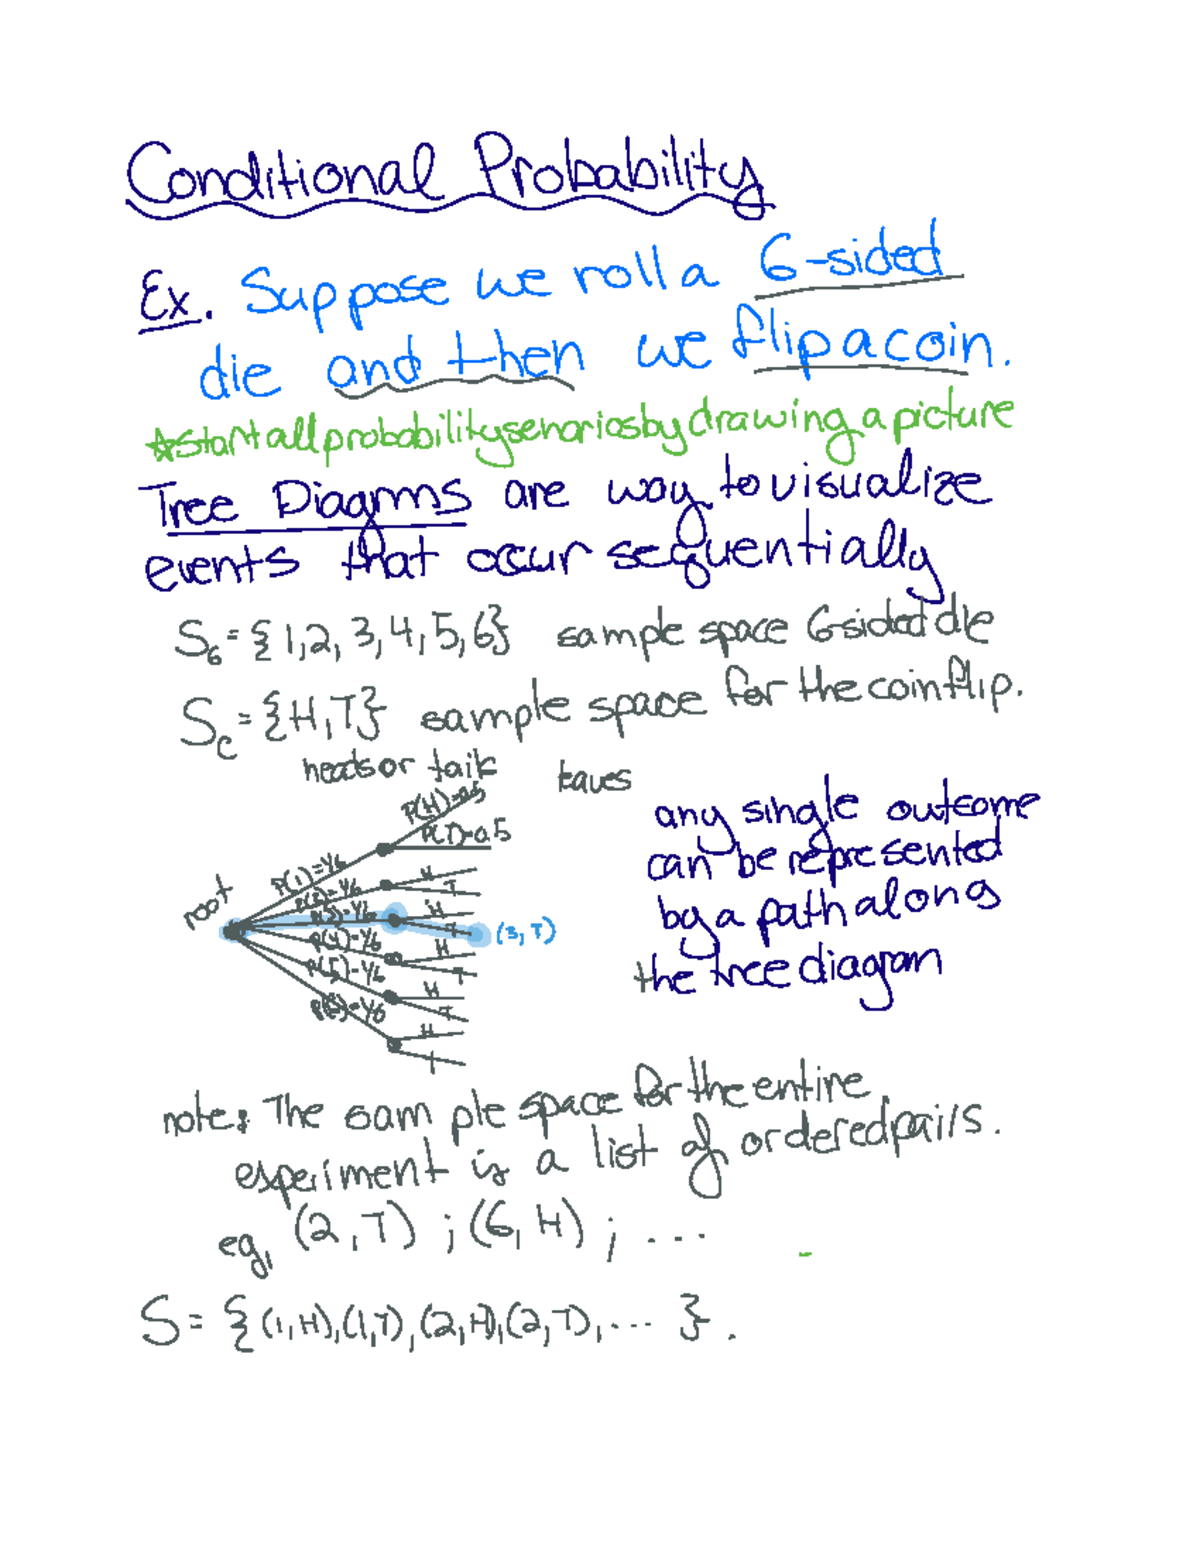 Conditional Probability
Ex. Suppose we roll a 6-sided
die and then we flip a coin.
☆start all probability senarios by drawing a picture
Tree Diagrms are way to visualize
events that occur sequentially
S₆ = {1,2,3,4,5,6} sample space 6-sided die
S_c = {H,T} sample space for the coin flip.
heads or tails
P(H)=0.5
P(T)=0.5
root
P(1)=1/6
P(2)=1/6
P(3)=1/6
P(4)=1/6
P(5)=1/6
H
T
H
T
(3,T)
H
T
H
T
H
T
any single outcome
can be represented
by a path along
the tree diagram
note: The sample space for the entire
experiment is a list of ordered pairs.
eg, (2,T) ; (6,H) ; ...
S = {(1,H),(1,T),(2,H),(2,T),... }.